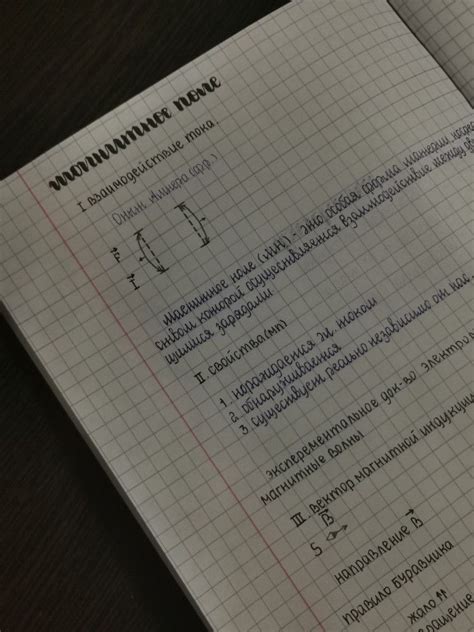 магнитное поле
I взаимодействие тока.
Опыт Ампера (фр.)
F
I
Магнитное поле (МП) - это особая форма материи
ством которой осуществляется взаимодействие между
щимися зарядами
II. свойства (мп)
1. нарождается эл. током
2. обнаруживается
3. существует реально независимо от нас.
эксперементальное док-во. электро
магнитные волны
III. вектор магнитной индукции
B
S
направление B
правило буравчика
жало ↑↑
ращение